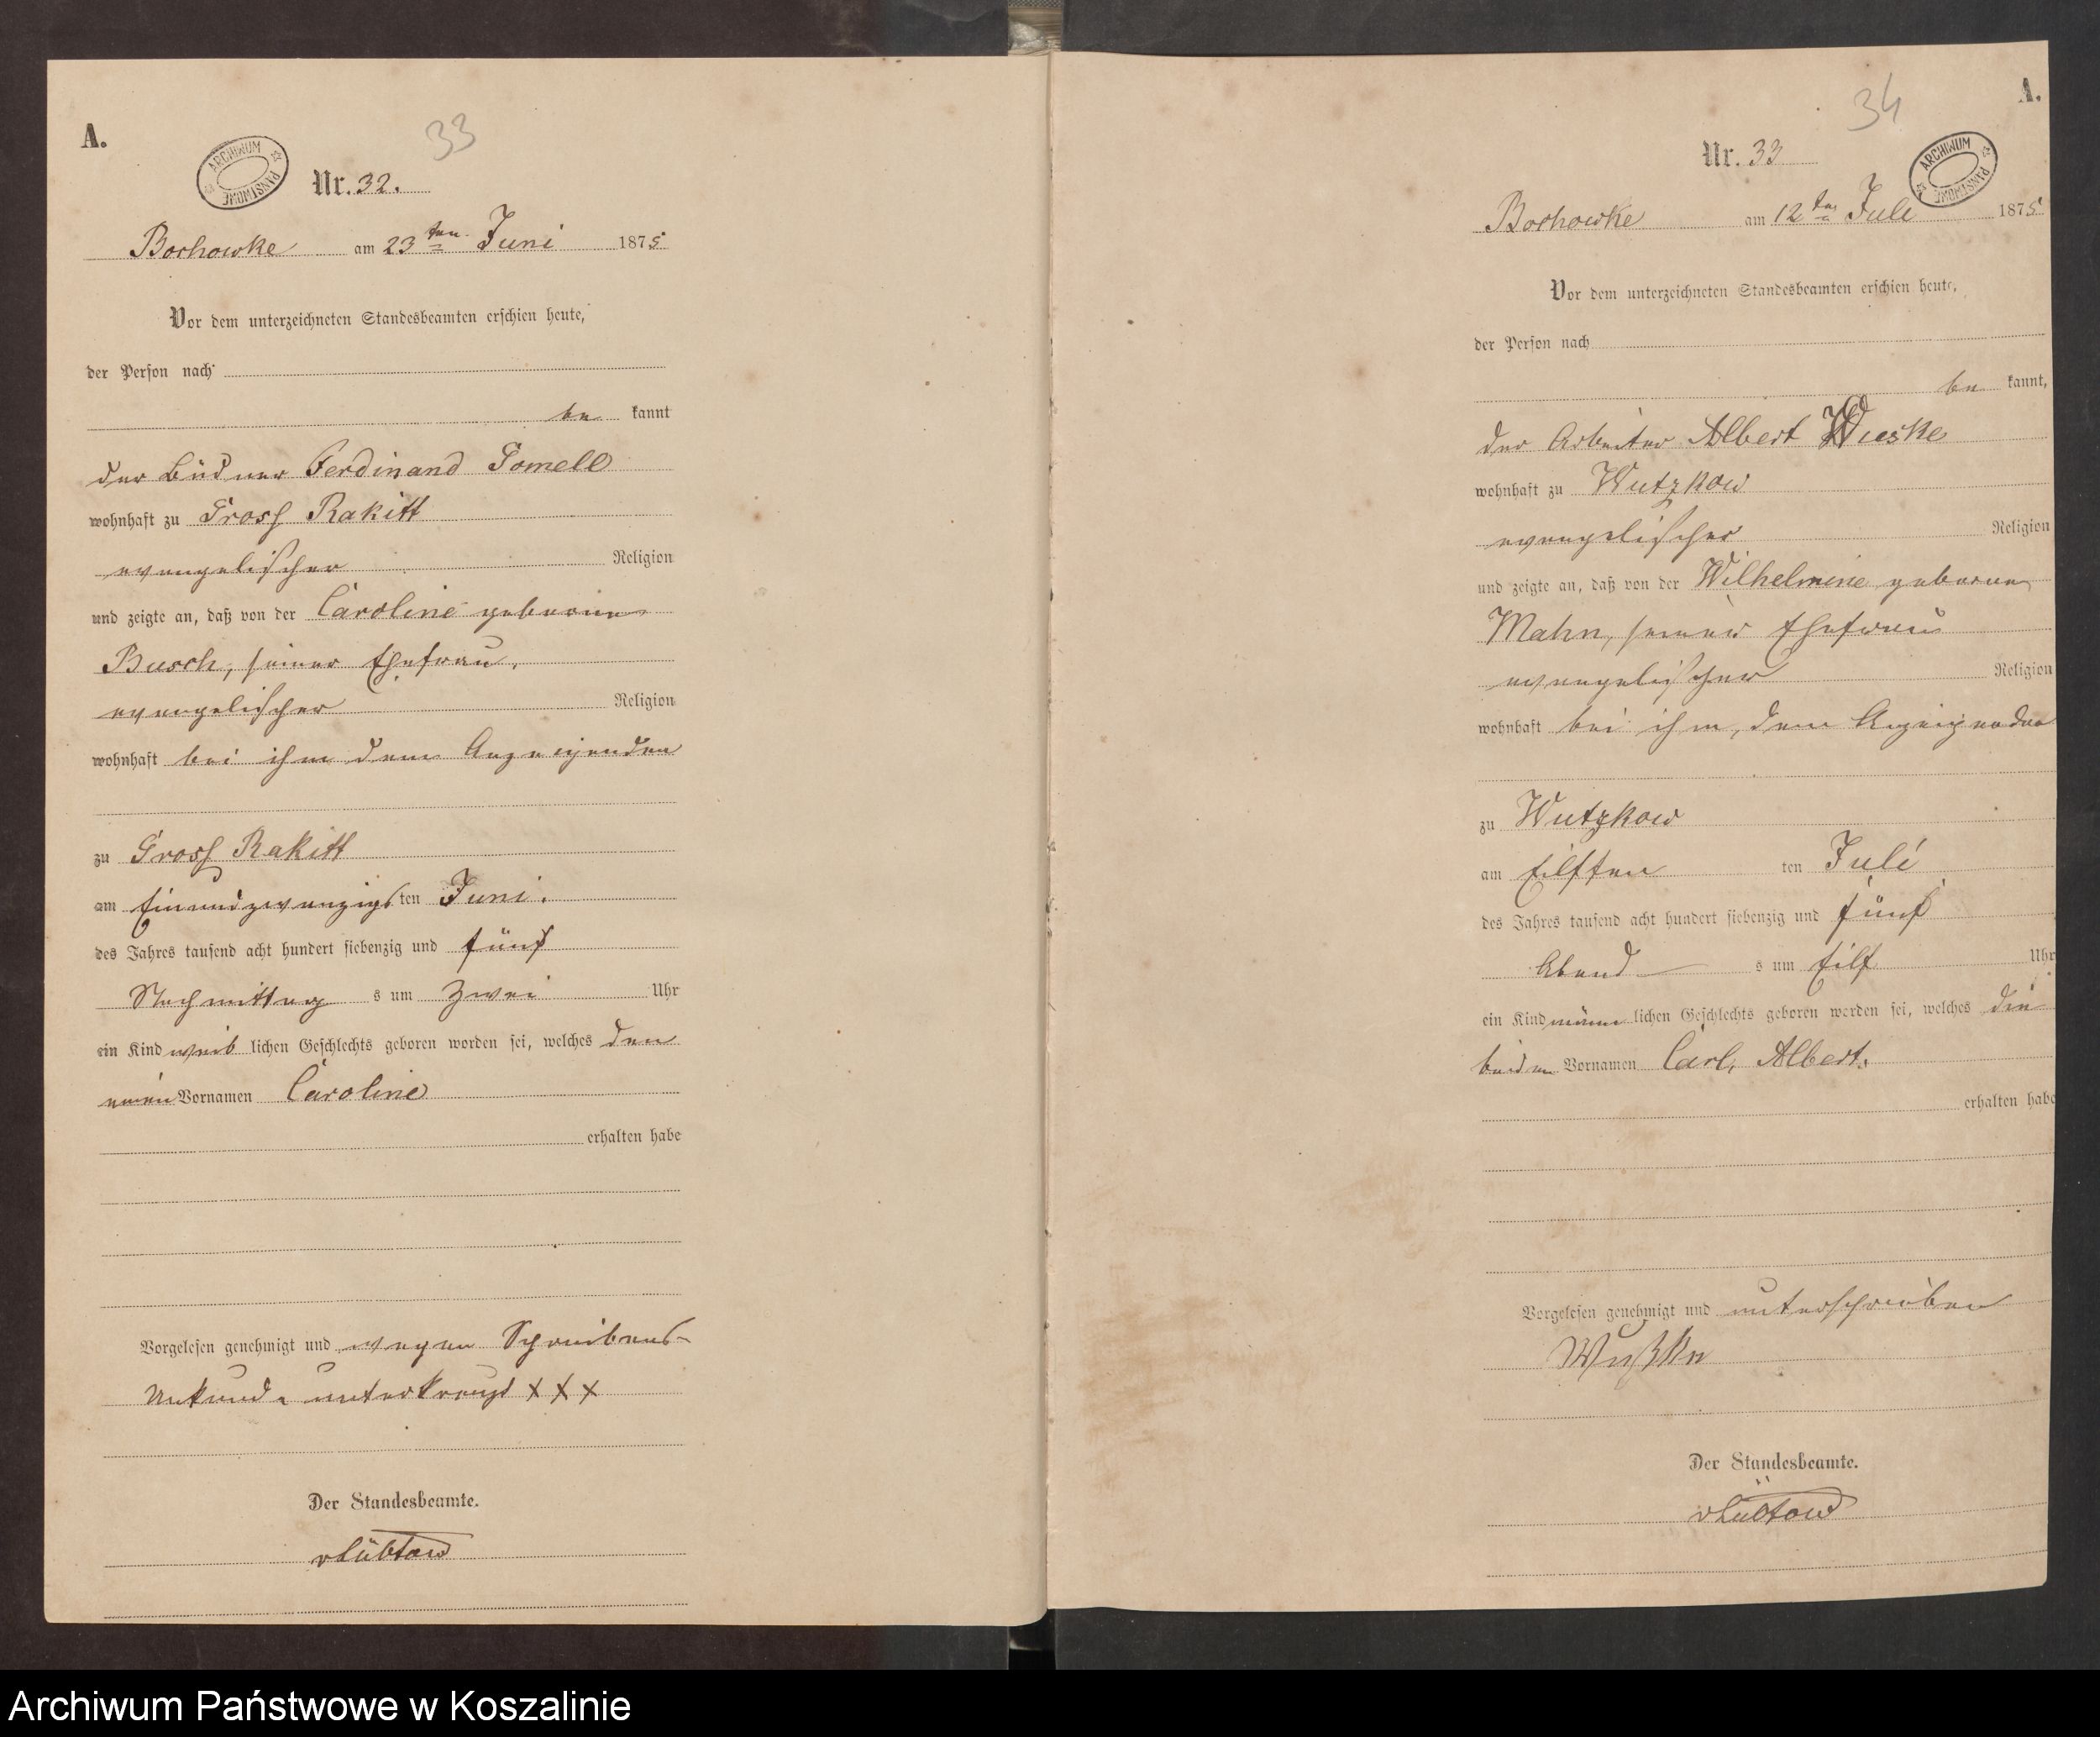 A.
33
ARCHIWUM PAŃSTWOWE
Nr. 32.
Bochowke am 23ten Juni 1875
Vor dem unterzeichneten Standesbeamten erschien heute,
der Person nach
be kannt
der Büdner Ferdinand Gomell
wohnhaft zu Gross Rakitt
evangelischer Religion
und zeigte an, daß von der Caroline geborne
Busch, seiner Ehefrau,
evangelischer Religion
wohnhaft bei ihm dem Anzeigenden
zu Gross Rakitt
am Einundzwanzigsten Juni.
des Jahres tausend acht hundert siebenzig und fünf
Nachmittag s um zwei Uhr
ein Kind weib lichen Geschlechts geboren worden sei, welches den
einen Vornamen Caroline
erhalten habe
Vorgelesen genehmigt und wegen Schreibens-
Unkunde unterkreuzt XXX
Der Standesbeamte.
vLübtow
34
A.
ARCHIWUM PAŃSTWOWE
Nr. 33
Bochowke am 12ten Juli 1875
Vor dem unterzeichneten Standesbeamten erschien heute,
der Person nach
be kannt,
der Arbeiter Albert
wohnhaft zu Wutzkow
evangelischer Religion
und zeigte an, daß von der Wilhelmine geborne
Mahn, seiner Ehefrau
evangelischer Religion
wohnhaft bei ihm, dem Anzeigenden
zu Wutzkow
am Eilften ten Juli
des Jahres tausend acht hundert siebenzig und fünf
Abend s um Eilf Uhr
ein Kind männ lichen Geschlechts geboren worden sei, welches die
beiden Vornamen Carl, Albert.
erhalten habe
Vorgelesen genehmigt und unterschrieben
Der Standesbeamte.
vLübtow
Archiwum Państwowe w Koszalinie